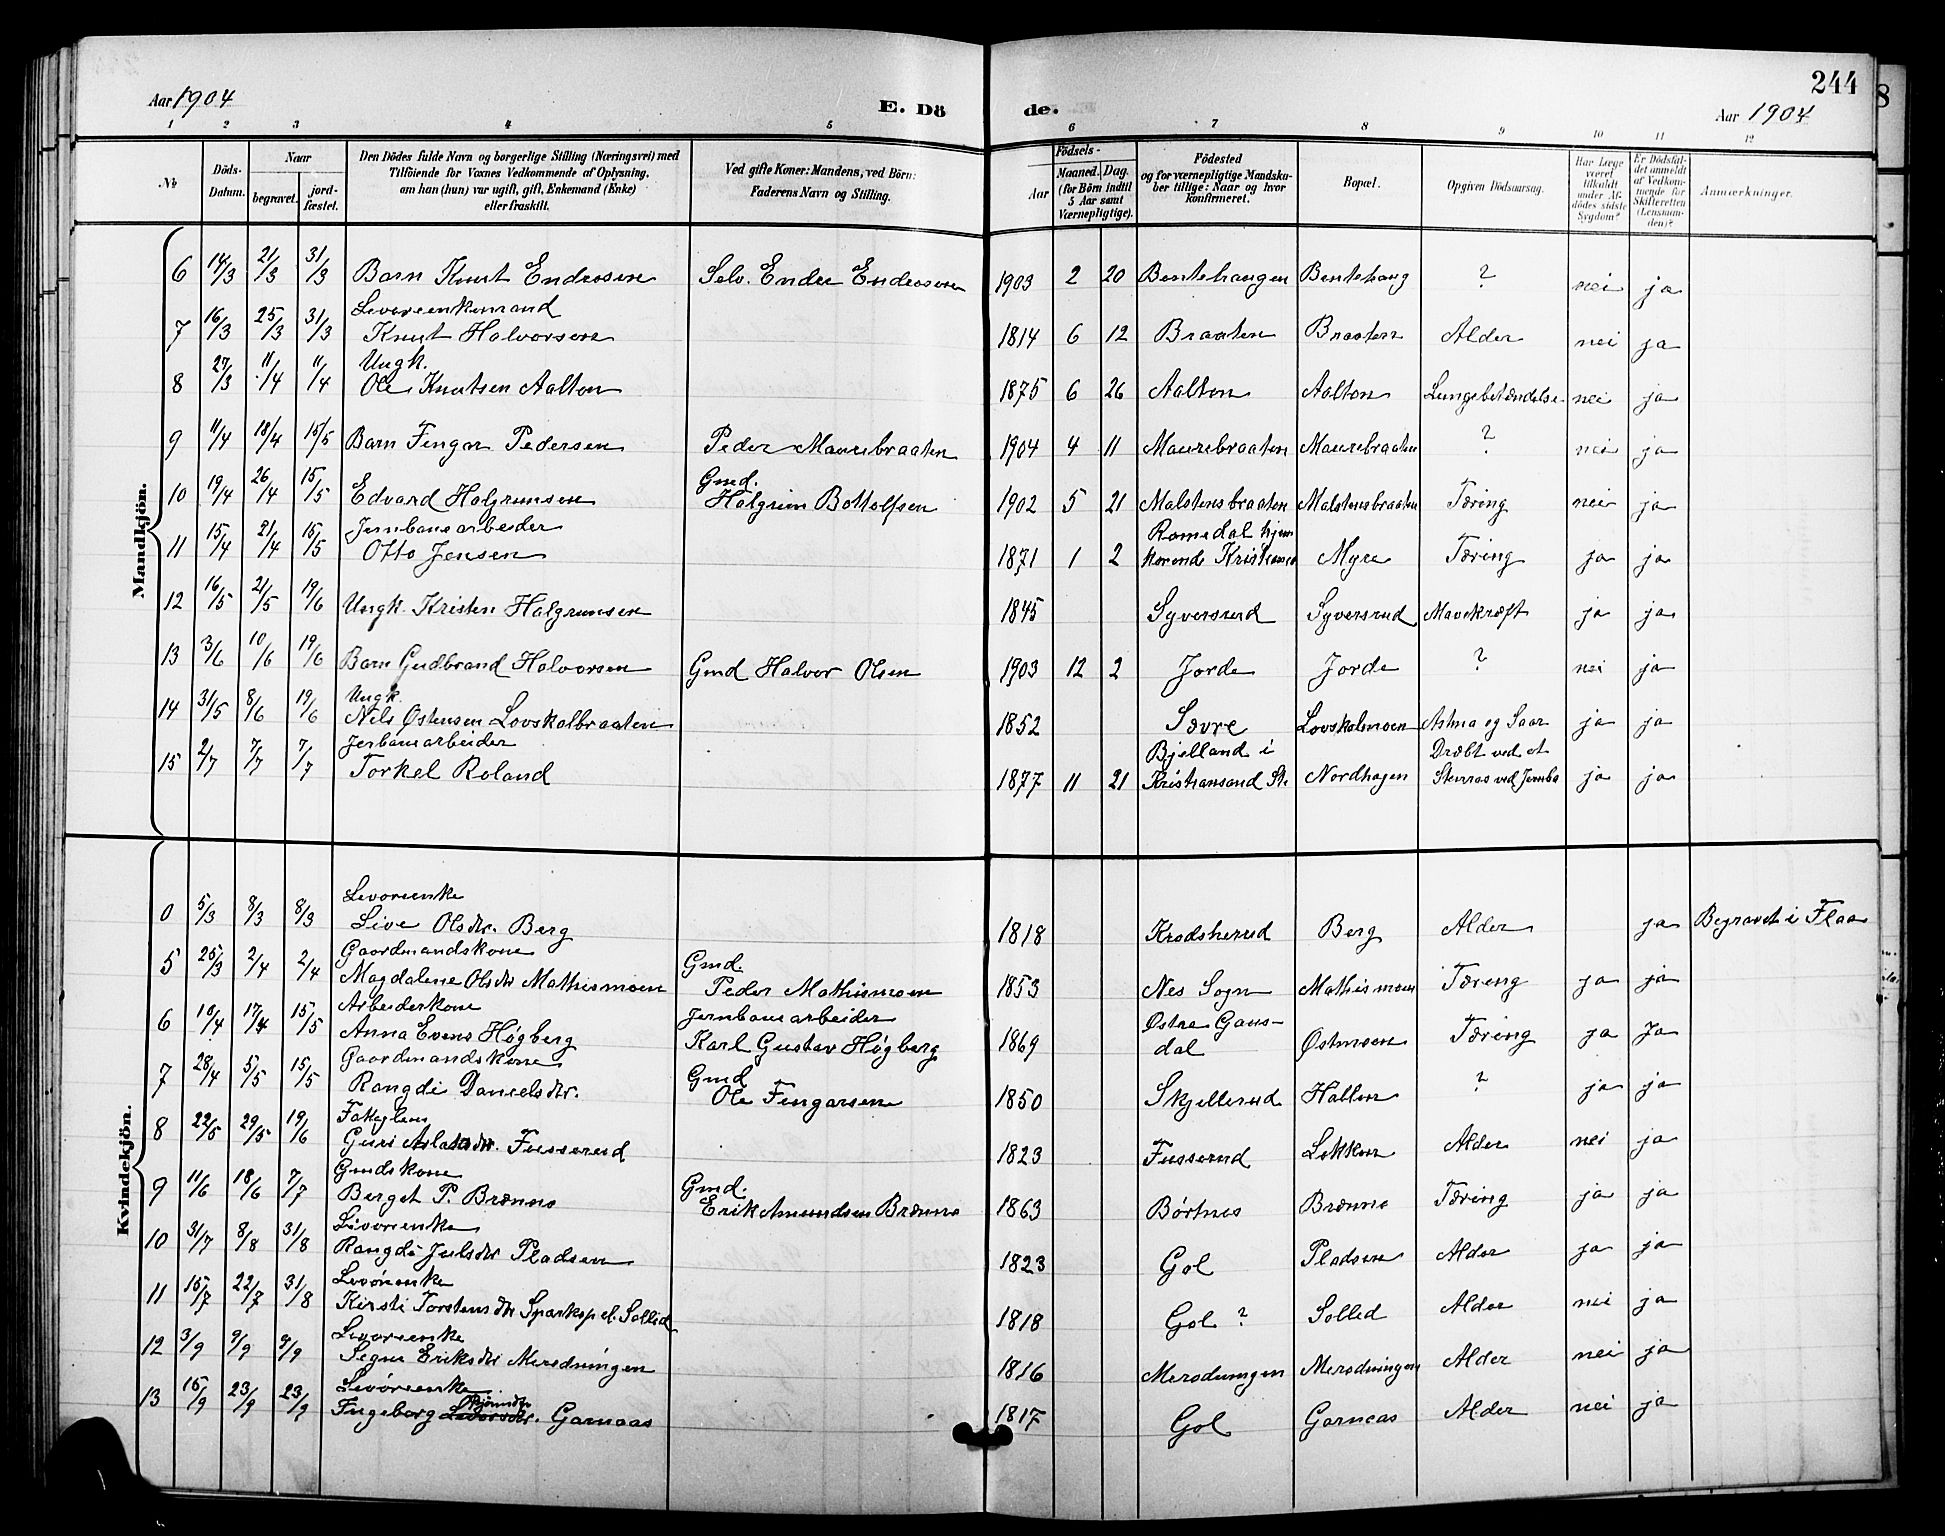 244
8
Aar 1904
E. Dö
de.
Aar 1904
1 2 3 4 5 6 7 8 9 10 11 12
№
Döds-Datum.
Naar
begravet.
jord-fæstet.
Den Dödes fulde Navn og borgerlige Stilling (Næringsvei) med
Tilföiende for Voxnes Vedkommende af Oplysning,
om han (hun) var ugift, gift, Enkemand (Enke)
eller fraskilt.
Ved gifte Koner: Mandens, ved Börn:
Faderens Navn og Stilling.
Födsels-
Aar
Maaned. Dag.
(for Börn indtil
5 Aar samt
Værnepligtige).
Födested
og for værnepligtige Mandska-
ber tillige: Naar og hvor
konfirmeret.
Bopæl.
Opgiven Dödsaarsag.
Har Læge
været
tilkaldt
under Af-
dödes sidste
Sygdom?
Er Dödsfal-
det anmeldt
af Vedkom-
mende for
Skifteretten
(Lensman-
den)?
Anmærkninger.
Mandkjön.
6 14/3 21/3 31/3 Barn Knut Endresen Selv. Endre Endresen 1903 2 20 Bentehaugen Bentehaug ? nei ja
Levøreenkemand
7 16/3 25/3 31/3 Knut Halvorsen 1814 6 12 Braaten Braaten Alder nei ja
Ungk.
8 27/3 11/4 11/4 Ole Knutsen Aalton 1875 6 26 Aalton Aalton Lungebetændelse nei ja
9 11/4 18/4 15/5 Barn Fingar Pedersen Peder Maurebraaten 1904 4 11 Maurebraaten Maurebraaten ? nei ja
Gmd.
10 19/4 26/4 15/5 Edvard Halgrimsen Halgrim Bottolfsen 1902 5 21 Malstensbraaten Malstensbraaten Tæring nei ja
Jernbanearbeider Romedal hjem
11 15/4 21/4 15/5 Otto Jensen 1871 1 2 Myre Tæring ja ja
12 16/5 21/5 19/6 Ungk. Kristen Halgrimsen 1845 Syversrud Syversrud Mavekræft ja ja
13 3/6 10/6 19/6 Barn Gudbrand Halvorsen Gmd Halvor Olsen 1903 12 2 Jorde Jorde ? nei ja
Ungk
14 31/5 8/6 19/6 Nils Østensen Lovskalbraaten 1852 Sævre Lovskalmoen Astma og Saar ja ja
Jerbanearbeider Bjelland i Dræbt ved et
15 2/7 7/7 7/7 Torkel Roland 1877 11 21 Kristiansand St. Nordhagen Stenras ved Jernba ja ja
Kvindekjön.
Levøreenke
0 5/3 8/3 8/3 Live Olsdtr. Berg 1818 Krødsherud Berg Alder ja Begravet i Flaa
Gaardmandskone Gmd.
5 25/3 2/4 2/4 Magdalene Olsdtr Mathismoen Peder Mathismoen 1853 Nes Sogn Mathismoen Tæring ja ja
Arbeiderkone Jernbanearbeider Østre Gaus-
6 10/4 17/4 15/5 Anna Evens Høgberg Karl Gustav Høgberg 1869 dal Østmoen Tæring ja Ja
Gaardmandskone Gmd
7 28/4 5/5 15/5 Rangdi Danielsdtr. Ole Fingarsen 1850 Skjellerud Hallen ? ja ja
8 22/5 29/5 19/6 Guri Aslaksdtr. Fusserud 1823 Fusserud Løkken Alder nei ja
Gmdskone Gmd.
9 11/6 18/6 7/7 Berget P. Brænno Erik Amundsen Brænno 1863 Børtnes Brænno Tæring ja ja
Levøreenke
10 31/7 8/8 31/8 Rangdi Julsdtr Pladsen 1823 Gol Pladsen Alder ja ja
Levørenke
11 15/7 22/7 31/8 Kirsti Torstensdtr Sparksp el. Sollid 1818 Gol ? Solled Alder nei ja
Levøreenke
12 3/9 9/9 9/9 Segne Eriksdtr Merodningen 1816 Merodningen Merodningen Alder nei ja
Levøreenke
Bjørnsdtr
13 15/9 23/9 23/9 Ingeborg Levorsdtr. Garnaas 1817 Gol Garnaas Alder nei ja